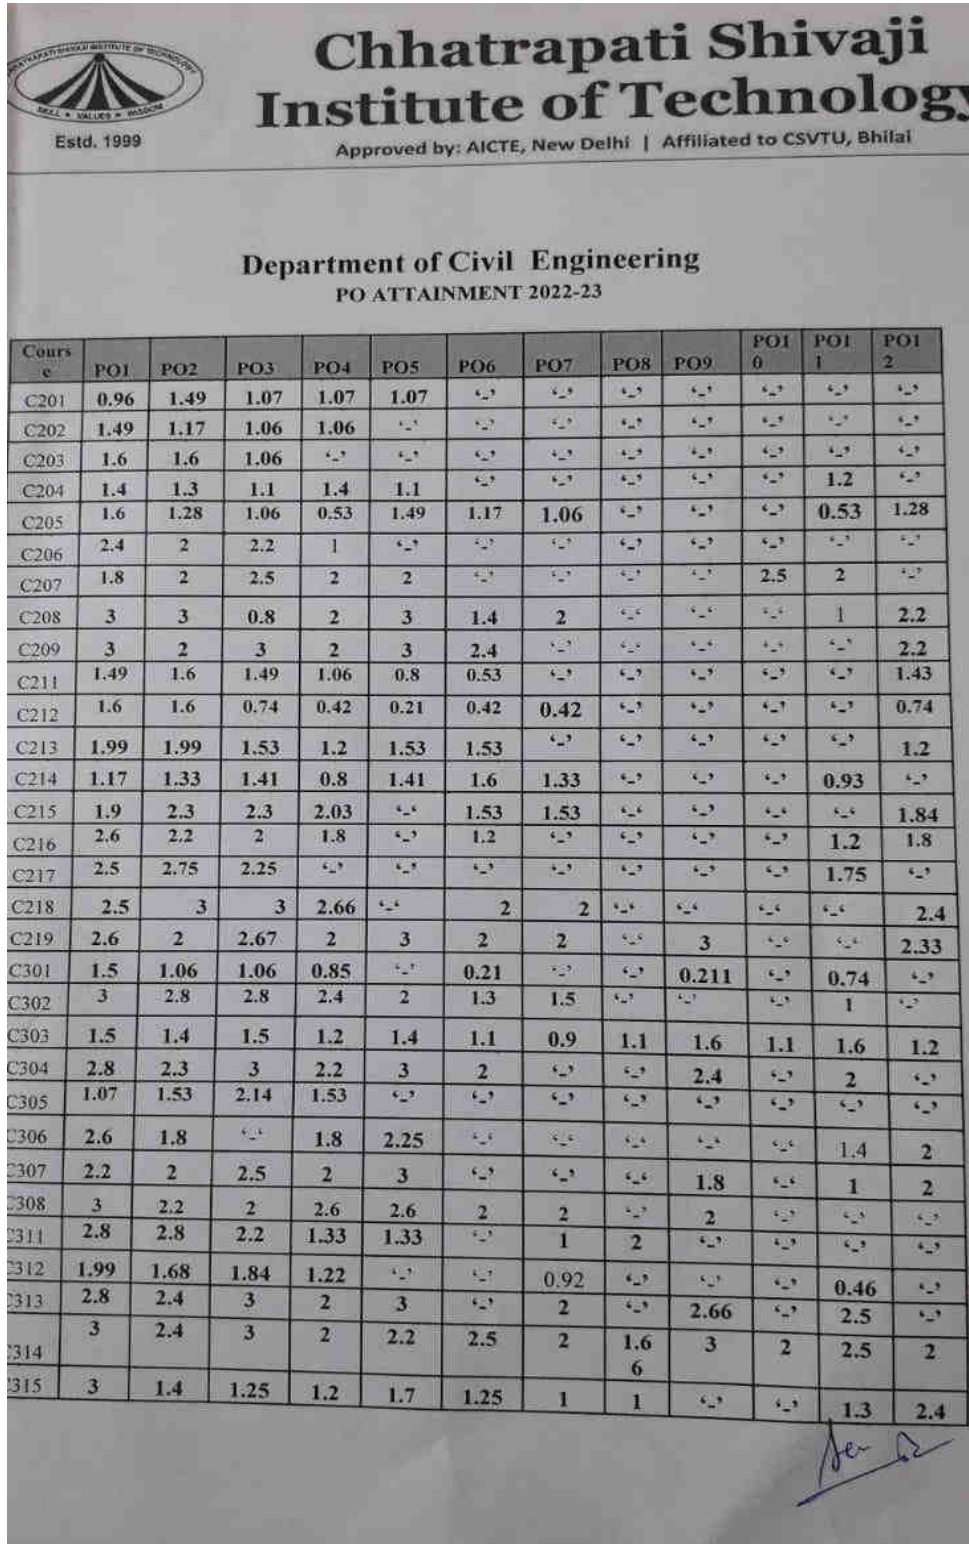 CHHATRAPATI SHIVAJI INSTITUTE OF TECHNOLOGY
SKILL • VALUES • WISDOM
Estd. 1999
Chhatrapati Shivaji
Institute of Technology
Approved by: AICTE, New Delhi | Affiliated to CSVTU, Bhilai
Department of Civil Engineering
PO ATTAINMENT 2022-23
Course PO1 PO2 PO3 PO4 PO5 PO6 PO7 PO8 PO9 PO10 PO11 PO12
C201 0.96 1.49 1.07 1.07 1.07 ‘-’ ‘-’ ‘-’ ‘-’ ‘-’ ‘-’ ‘-’
C202 1.49 1.17 1.06 1.06 ‘-’ ‘-’ ‘-’ ‘-’ ‘-’ ‘-’ ‘-’ ‘-’
C203 1.6 1.6 1.06 ‘-’ ‘-’ ‘-’ ‘-’ ‘-’ ‘-’ ‘-’ ‘-’ ‘-’
C204 1.4 1.3 1.1 1.4 1.1 ‘-’ ‘-’ ‘-’ ‘-’ ‘-’ 1.2 ‘-’
C205 1.6 1.28 1.06 0.53 1.49 1.17 1.06 ‘-’ ‘-’ ‘-’ 0.53 1.28
C206 2.4 2 2.2 1 ‘-’ ‘-’ ‘-’ ‘-’ ‘-’ ‘-’ ‘-’ ‘-’
C207 1.8 2 2.5 2 2 ‘-’ ‘-’ ‘-’ ‘-’ 2.5 2 ‘-’
C208 3 3 0.8 2 3 1.4 2 ‘-‘ ‘-‘ ‘-‘ 1 2.2
C209 3 2 3 2 3 2.4 ‘-’ ‘-‘ ‘-‘ ‘-‘ ‘-’ 2.2
C211 1.49 1.6 1.49 1.06 0.8 0.53 ‘-’ ‘-’ ‘-’ ‘-’ ‘-’ 1.43
C212 1.6 1.6 0.74 0.42 0.21 0.42 0.42 ‘-’ ‘-’ ‘-’ ‘-’ 0.74
C213 1.99 1.99 1.53 1.2 1.53 1.53 ‘-’ ‘-’ ‘-’ ‘-’ ‘-’ 1.2
C214 1.17 1.33 1.41 0.8 1.41 1.6 1.33 ‘-’ ‘-’ ‘-’ 0.93 ‘-’
C215 1.9 2.3 2.3 2.03 ‘-‘ 1.53 1.53 ‘-‘ ‘-’ ‘-‘ ‘-‘ 1.84
C216 2.6 2.2 2 1.8 ‘-’ 1.2 ‘-’ ‘-’ ‘-’ ‘-’ 1.2 1.8
C217 2.5 2.75 2.25 ‘-’ ‘-’ ‘-’ ‘-’ ‘-’ ‘-’ ‘-’ 1.75 ‘-’
C218 2.5 3 3 2.66 ‘-‘ 2 2 ‘-‘ ‘-‘ ‘-‘ ‘-‘ 2.4
C219 2.6 2 2.67 2 3 2 2 ‘-‘ 3 ‘-‘ ‘-‘ 2.33
C301 1.5 1.06 1.06 0.85 ‘-’ 0.21 ‘-’ ‘-’ 0.211 ‘-’ 0.74 ‘-’
C302 3 2.8 2.8 2.4 2 1.3 1.5 ‘-’ ‘-’ ‘-’ 1 ‘-’
C303 1.5 1.4 1.5 1.2 1.4 1.1 0.9 1.1 1.6 1.1 1.6 1.2
C304 2.8 2.3 3 2.2 3 2 ‘-’ ‘-’ 2.4 ‘-’ 2 ‘-’
C305 1.07 1.53 2.14 1.53 ‘-’ ‘-’ ‘-’ ‘-’ ‘-’ ‘-’ ‘-’ ‘-’
C306 2.6 1.8 ‘-‘ 1.8 2.25 ‘-‘ ‘-‘ ‘-‘ ‘-‘ ‘-‘ 1.4 2
C307 2.2 2 2.5 2 3 ‘-’ ‘-’ ‘-‘ 1.8 ‘-‘ 1 2
C308 3 2.2 2 2.6 2.6 2 2 ‘-’ 2 ‘-’ ‘-’ ‘-’
C311 2.8 2.8 2.2 1.33 1.33 ‘-’ 1 2 ‘-’ ‘-’ ‘-’ ‘-’
C312 1.99 1.68 1.84 1.22 ‘-’ ‘-’ 0.92 ‘-’ ‘-’ ‘-’ 0.46 ‘-’
C313 2.8 2.4 3 2 3 ‘-’ 2 ‘-’ 2.66 ‘-’ 2.5 ‘-’
C314 3 2.4 3 2 2.2 2.5 2 1.66 3 2 2.5 2
C315 3 1.4 1.25 1.2 1.7 1.25 1 1 ‘-’ ‘-’ 1.3 2.4